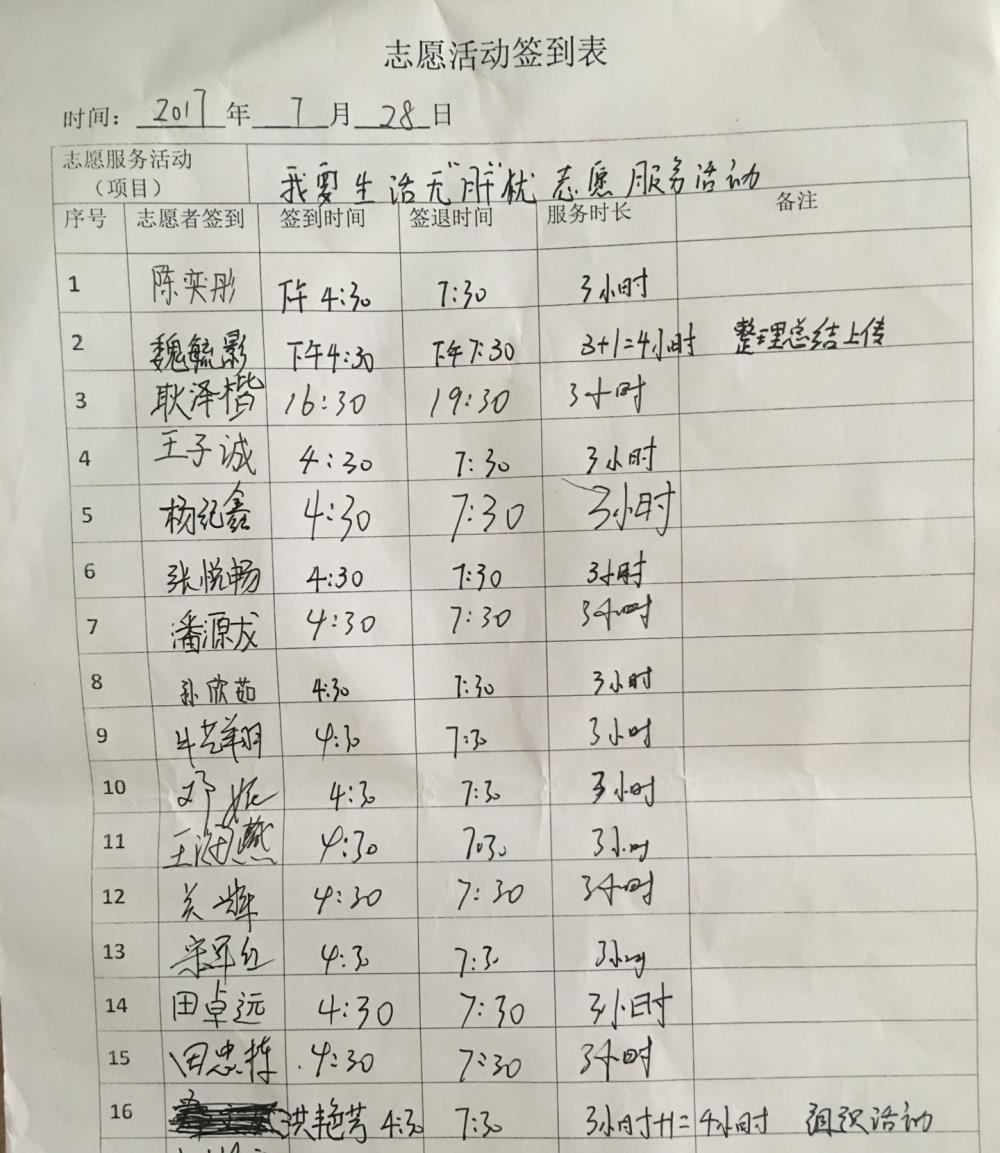 志愿活动签到表
时间： 2017 年 7 月 28 日
志愿服务活动（项目） 我要生活无"胖"忧 志愿服务活动
序号 志愿者签到 签到时间 签退时间 服务时长 备注
1 陈奕彤 下午 4:30 7:30 3小时
2 魏毓影 下午4:30 下午7:30 3+1=4小时 整理总结上传
3 耿泽楷 16:30 19:30 3小时
4 王子诚 4:30 7:30 3小时
5 杨纪鑫 4:30 7:30 3小时
6 张悦畅 4:30 7:30 3小时
7 潘源龙 4:30 7:30 3小时
8 孙欣茹 4:30 7:30 3小时
9 牛艺翔 4:30 7:30 3小时
10 邓妮 4:30 7:30 3小时
11 王海燕 4:30 7:30 3小时
12 关辉 4:30 7:30 3小时
13 宋军红 4:30 7:30 3小时
14 田卓远 4:30 7:30 3小时
15 田忠栋 4:30 7:30 3小时
16 洪艳芳 4:30 7:30 3小时+1=4小时 组织活动